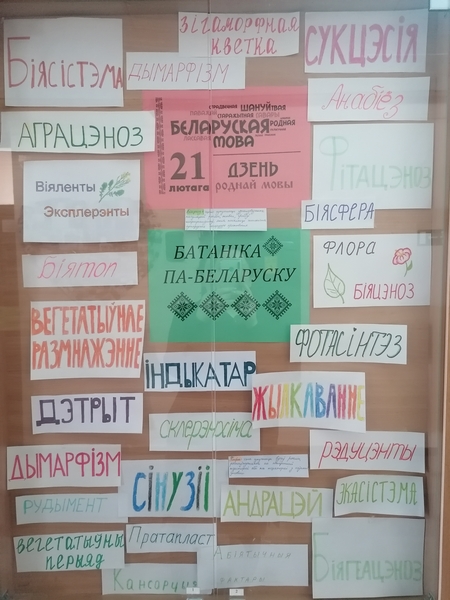 зігаморфная
кветка
СУКЦЭСІЯ
Біясістэма
ДЫМАРФІЗМ
Анабіёз
АГРАЦЭНОЗ
ШАНУЙ
БЕЛАРУСКАЯ
РОДНАЯ
МОВА
21
лютага
ДЗЕНЬ
РОДНАЙ МОВЫ
Фітацэноз
Віяленты
Эксплерэнты
БІЯСФЕРА
БАТАНІКА
ПА-БЕЛАРУСКУ
ФЛОРА
БІЯЦЭНОЗ
Біятоп
ВЕГЕТАТЫЎНАЕ
РАЗМНАЖЭННЕ
ФОТАСІНТЭЗ
ІНДЫКАТАР
ЖЫЛКАВАННЕ
ДЭТРЫТ
склерэнхіма
рэдуцэнты
ДЫМАРФІЗМ
СІНУЗІІ
ЭКАСІСТЭМА
РУДЫМЕНТ
АНДРАЦЭЙ
вегетатыўны
перыяд
Пратапласт
Абіятычныя
фактары
Біягеацэноз
Кансорцыя